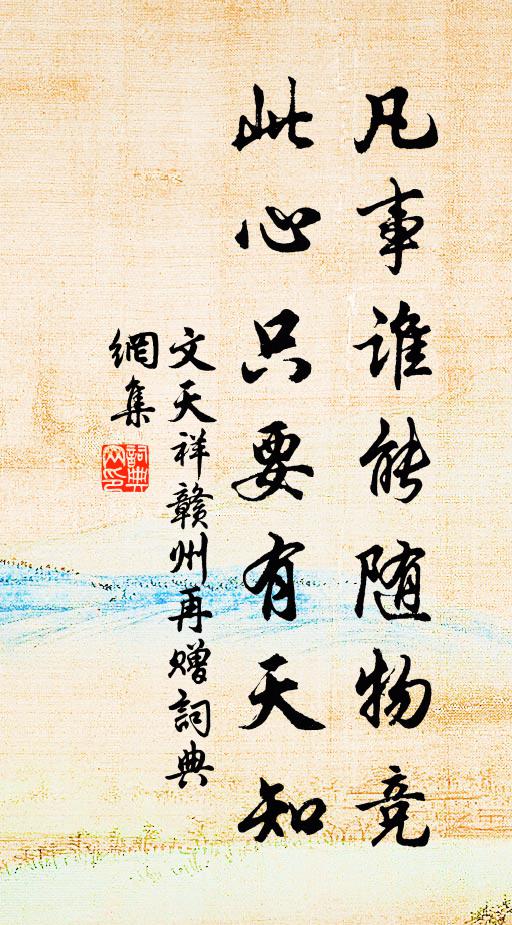 凡事谁能随物竞
此心只要有天知
文天祥赣州再赠詞典
網集
詞典
网印